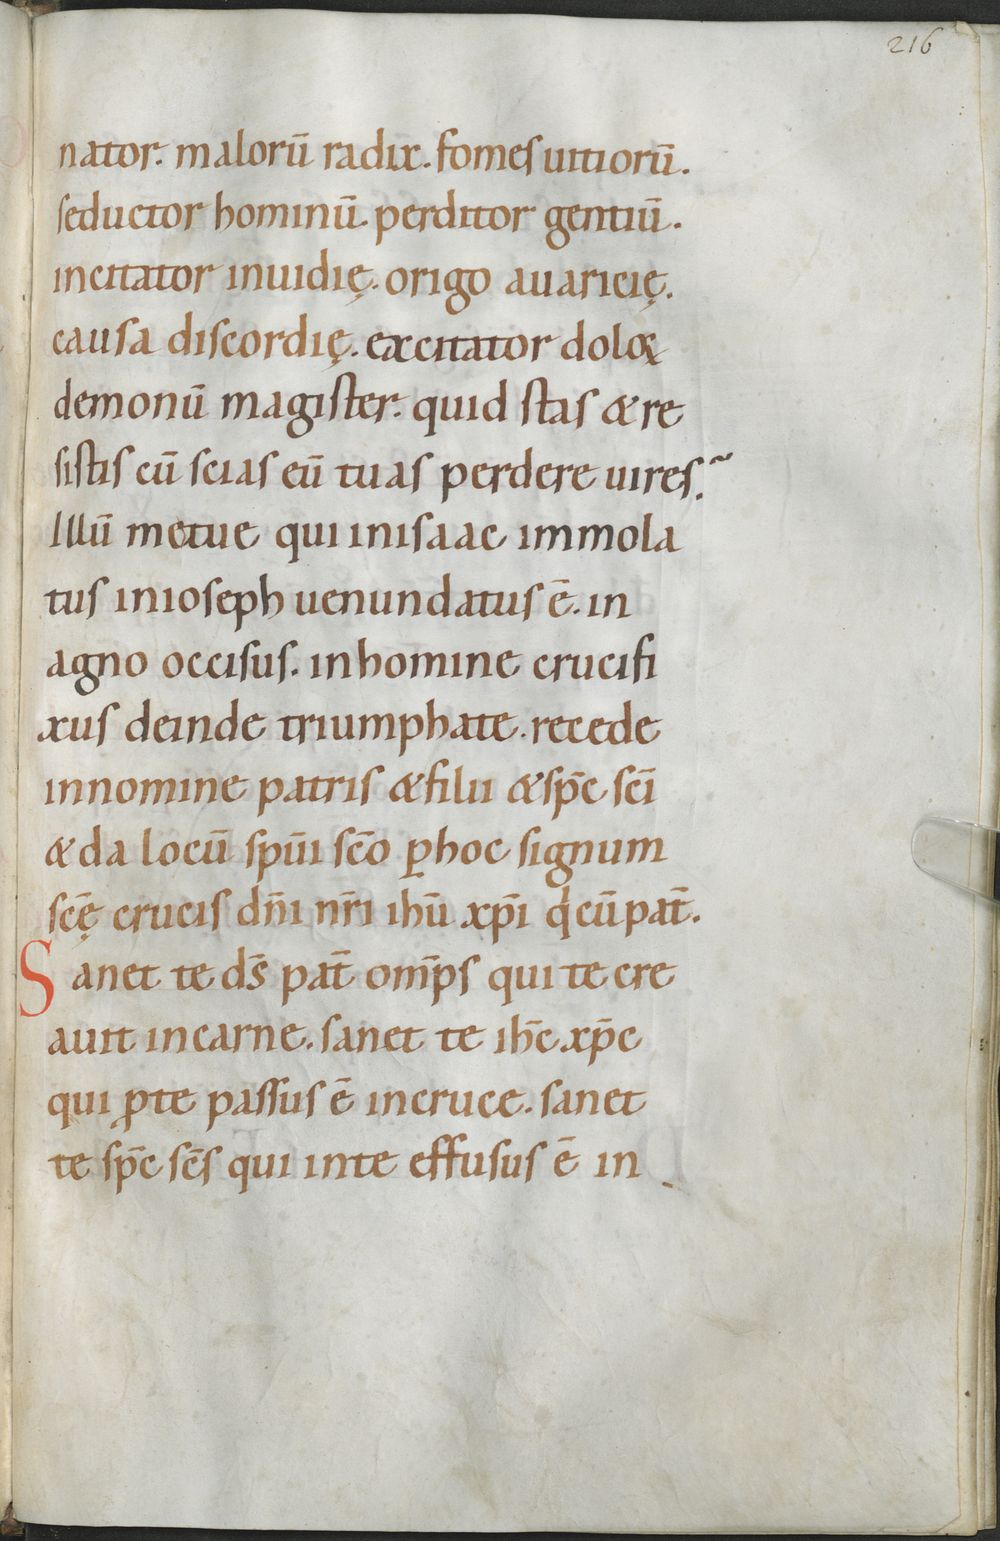 216
nator. malorū radix. fomes uitiorū.
seductor hominū. perditor gentiū.
incitator inuidię. origo auaricię.
causa discordię. excitator doloꝝ
demonū magister. quid stas & re
sistis cū scias eū tuas perdere uires.~
Illū metue qui inisaac immola
tus inioseph uenundatus ē. in
agno occisus. inhomine crucifi
xus deinde triumphate. recede
innomine patris &filii &sp̄c sc̄i
&da locū sp̄ui sc̄o ꝑhoc signum
sc̄ę crucis dn̄i nr̄i ihū xp̄i qͥcū pat̄.
Sanet te ds̄ pat̄ omp̄s qui te cre
auit incarne. sanet te ih̄c xp̄c
qui ꝓte passus ē incruce. sanet
te sp̄c sc̄s qui inte effusus ē in